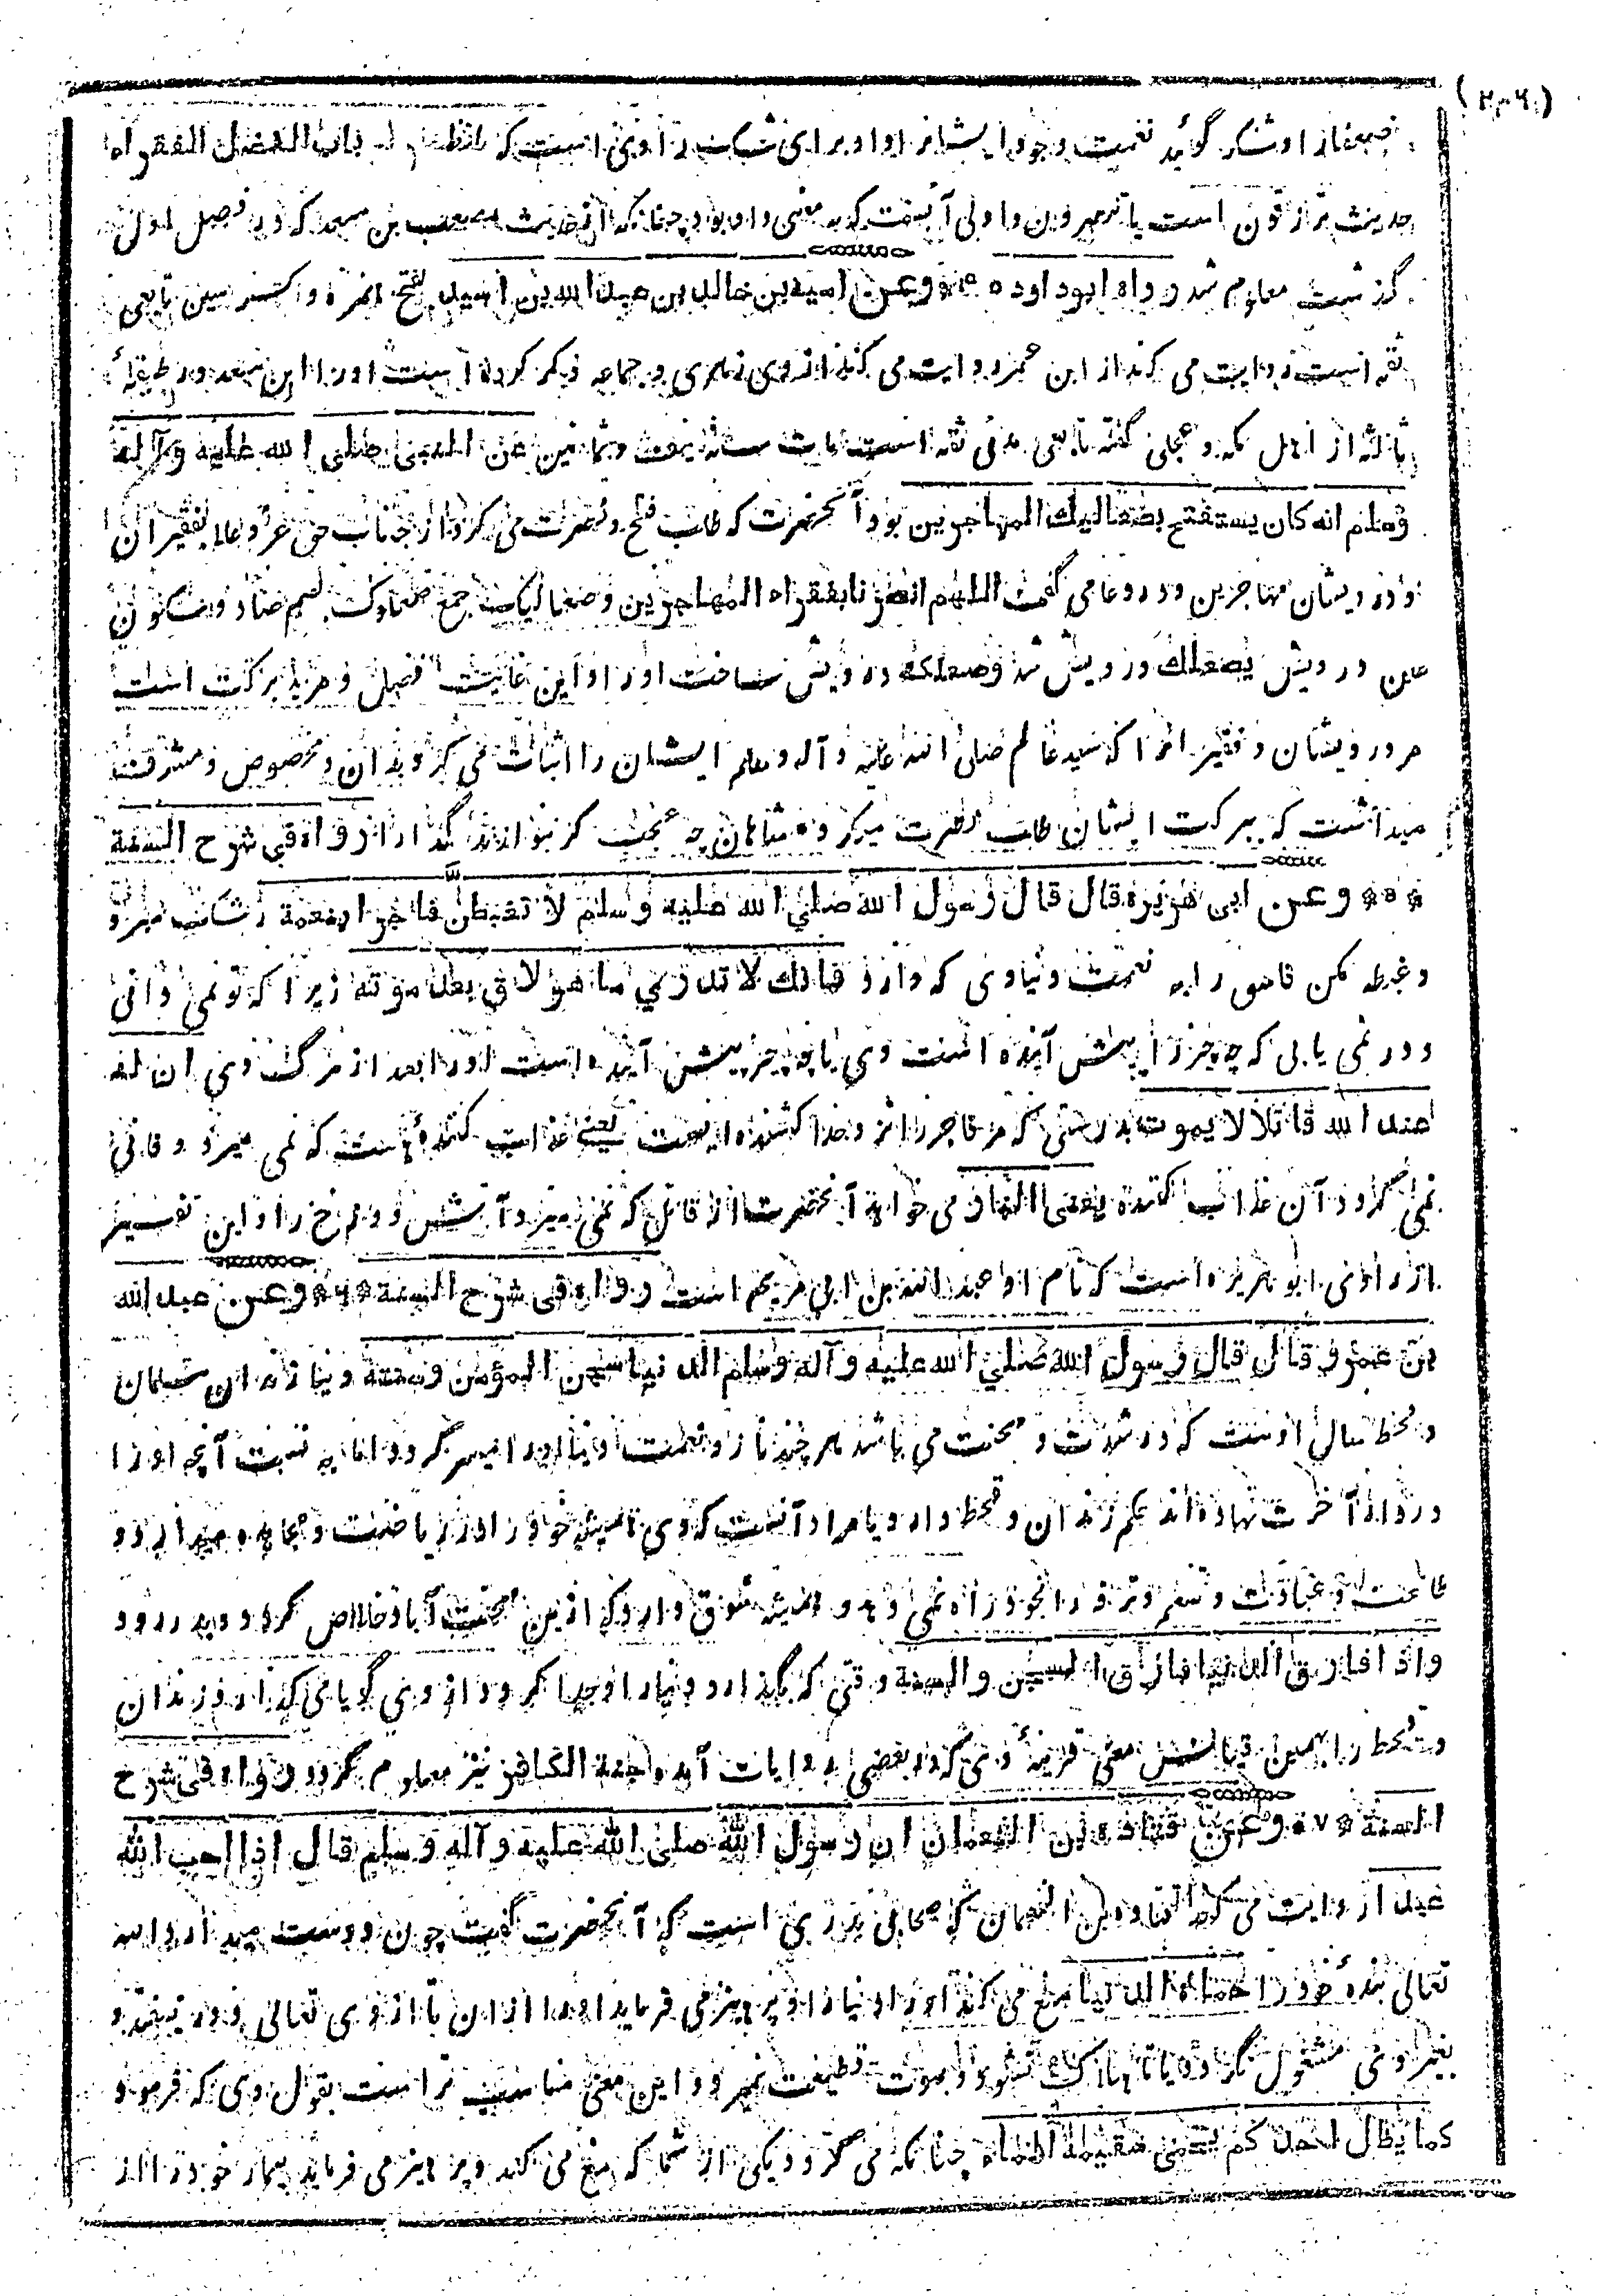 ضعفا را و شکر گوئید نعمت وجود ایشانرا و او برای شک راوی است که باب الفضل الفقراء
حدیث است یا و اولی آنست که بمعنی واو بود چنانکه از حدیث مصعب بن سعد که در فصل اول
گذشت معلوم شد رواه ابوداود وعن امیة بن خالد بن عبد الله بن اسید بفتح همزه و کسر سین تابعی
ثقه است روایت می کند از ابن عمر و روایت می کند از وی زهری و جماعه ذکر کرده است اورا ابن سعد در طبقهٔ
ثالثه از اهل مکه و عجلی گفته تابعی مدنی ثقه است مات سنة سبع وثمانین عن النبی صلی الله علیه وآله
وسلم انه کان یستفتح بصعالیک المهاجرین بود آنحضرت که طلب فتح و نصرت می کرد از جناب حق عز و علا بفقیران
و درویشان مهاجرین و در دعا می گفت اللهم انصرنا بفقراء المهاجرین وصعالیک جمع صعلوک بضم صاد و سکون
عین درویش یصعلک درویش شد وصعلکه درویش ساخت اورا و این غایت فضل و مزید برکت است
مر درویشان و فقیر انرا که سید عالم صلی الله علیه وآله وسلم ایشان را اثبات می کرد و بدان مخصوص و مشرف
میداشت که ببرکت ایشان طلب نصرت میکرد * شاهان چه عجب گر بنوازند گدا را * رواه فی شرح السنة
*۵* وعن ابی هریره قال قال رسول الله صلی الله علیه وسلم لا تغبطن فاجرا بنعمة رشک مبر
و غبطه مکن فاسق را به نعمت دنیاوی که دارد فانک لا تدری ما هو لاق بعد موته زیرا که تو نمی دانی
و در نمی یابی که چه چیز را پیش آینده است وی یا چه چیز پیش آینده است اورا بعد از مرگ وی ان له
عند الله قاتلا لا یموت بدرستی که مر فاجر را نزد خدا کشنده ایست یعنی عذاب کننده است که نمی میرد و فانی
نمی گردد آن عذاب کننده یعنی النار می خواهد آنحضرت از قاتل که نمی میرد آتش دوزخ را و این تفسیر
از راوی ابو هریره است که نام او عبد الله بن ابی مریم است رواه فی شرح السنة *۶* وعن عبد الله
بن عمرو قال قال رسول الله صلی الله علیه وآله وسلم الدنیا سجن المؤمن وسنته دنیا زندان مسلمان
و قحط سالی اوست که در شدت و محنت می باشد هر چند ناز و نعمت دنیا اورا میسر گردد اما به نسبت آنچه اورا
در دار آخرت نهاده اند حکم زندان و قحط دارد یا مراد آنست که وی همیشه خود را در ریاضت و مجاهده میدارد و
طاعت و عبادت و تنعم و ترفه را بخود راه نمی دهد و همیشه شوق دارد که ازین محنت آباد خلاص گردد و بدر رود
واذا فارق الدنیا فارق السجن والسنة وقتی که بگذارد دنیا را و جدا گردد از وی گویا می گذارد زندان
و قحط را بهمین قیاس معنی قرینهٔ وی که در بعضی روایات آمده وجنة الکافر نیز معلوم گردد رواه فی شرح
السنة *۷* وعن قتادة بن النعمان ان رسول الله صلی الله علیه وآله وسلم قال اذا احب الله
عبدا روایت می کند قتاده بن النعمان که صحابی بدری است که آنحضرت گفت چون دوست میدارد الله
تعالی بندهٔ خود را حماه الدنیا منع می کند اورا دنیا را و پرهیز می فرماید اورا از ان تا از وی تعالی دور نیفتد و
بغیر وی مشغول نگردد یا تا هلاک نشود و بموت قطیعت نمیرد و این معنی مناسب تر است بقول وی که فرمود
کما یظل احدکم یحمی سقیمه الماء چنانکه می گردد یکی از شما که منع می کند و پرهیز می فرماید بیمار خود را از